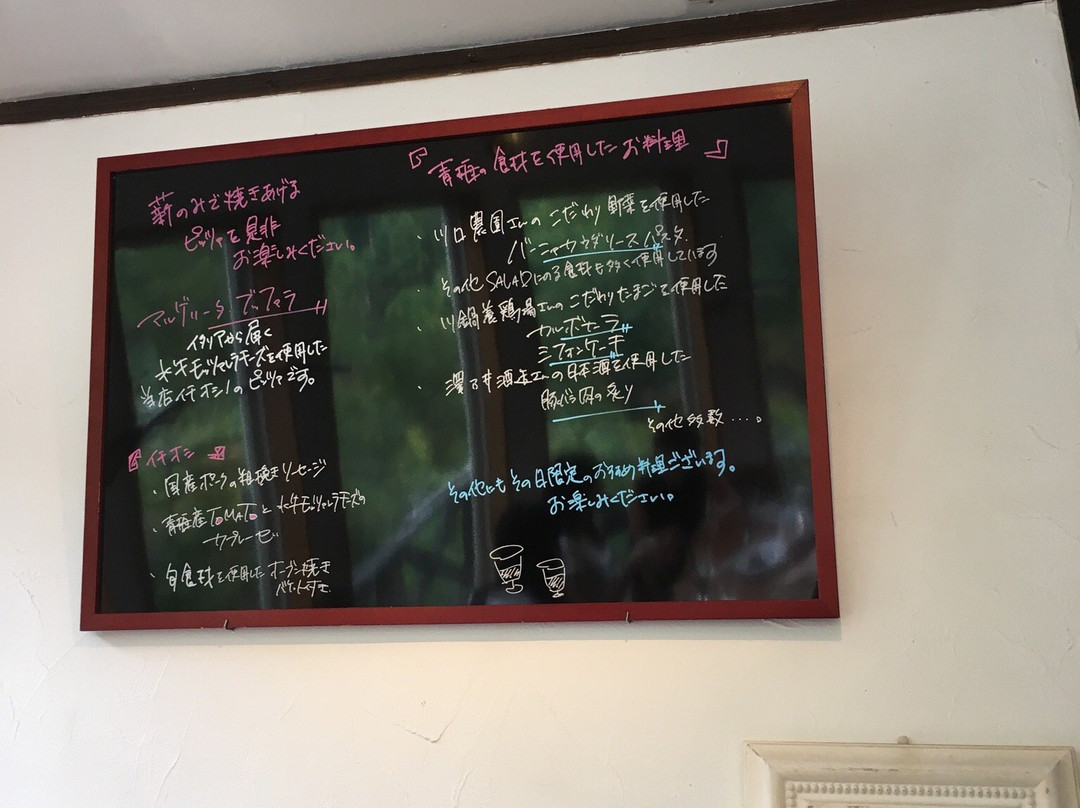 薪のみで焼きあげる
ピッツァを是非
お楽しみください。
マルゲリータ ブッファラ
イタリアから届く
水牛モッツァレラチーズを使用した
当店イチオシ!のピッツァです。
『イチオシ』
・国産ポークの粗挽きソーセージ
・青梅産TOMATOと水牛モッツァレラチーズの
カプレーゼ
・旬食材を使用したオーブン焼き
『青梅の食材を使用したお料理』
・川口農園さんのこだわり野菜を使用した
バーニャカウダソースパスタ
・その他SALADにのる食材も多く使用しています
・川鍋養鶏場さんのこだわりたまごを使用した
カルボナーラ
シフォンケーキ
・澤乃井酒造さんの日本酒を使用した
豚バラ肉の炙り
その他多数・・・。
その他にもその日限定のおすすめ料理ございます。
お楽しみください。